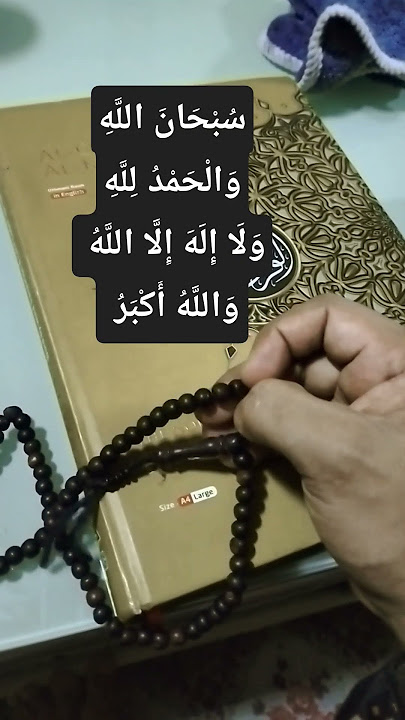 سُبْحَانَ اللَّهِ
وَالْحَمْدُ لِلَّهِ
وَلَا إِلَهَ إِلَّا اللَّهُ
وَاللَّهُ أَكْبَرُ
in English
Size A4 Large